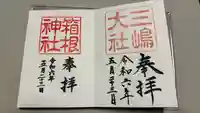 三嶋
大社
奉拝
令和六年
五月
日
箱根
神社
奉拝
令和六年
五月
日